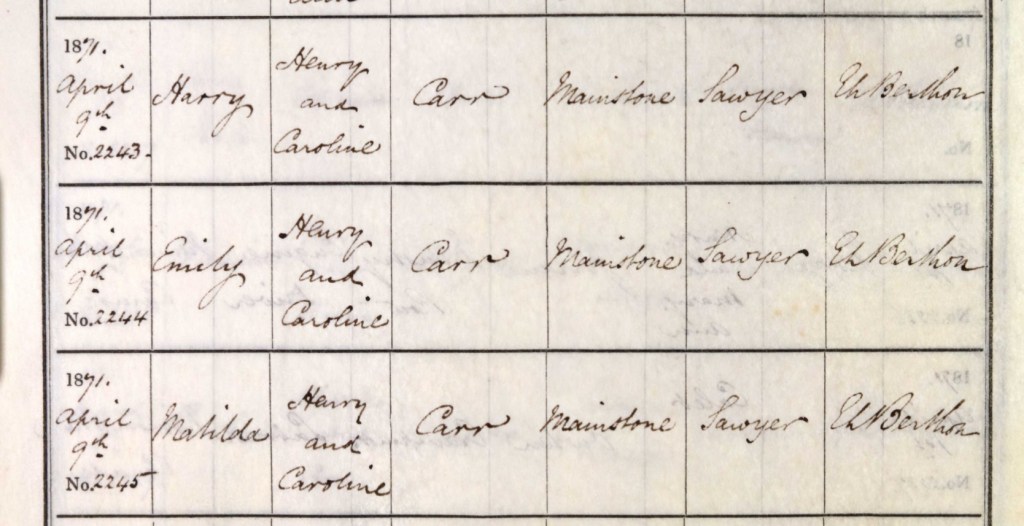 1871. April 9th No. 2243. Harry Henry and Caroline Carr Mainstone Sawyer EL Berthon
1871. April 9th No. 2244 Emily Henry and Caroline Carr Mainstone Sawyer EL Berthon
1871. April 9th No. 2245 Matilda Henry and Caroline Carr Mainstone Sawyer EL Berthon